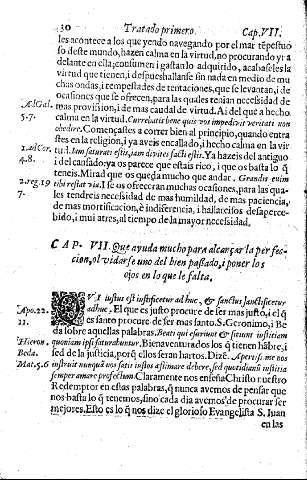 30 Tratado primero. Cap. VII.
les acontece a los que yendo navegando por el mar tēpestuo
so deste mundo, hazen calma en la virtud, no procurando yr a
delante en ella; consumen i gastan lo adquirido, acabaseles la
virtud que tienen, i despues hallanse sin nada en medio de mu
chas ondas, i tempestades de tentaciones, que se levantan, i de
ocasiones que se ofrecen, para las quales tenian necessidad de
Ad Gal. mas provision, i de mas caudal de virtud. Ai del que a hecho
5-7. calma en la virtud. Currebatis bene quis vos impedivit veritati non
obedire. Començastes a correr bien al principio, quando entra
stes en la religion, i ya aveis encallado, i hecho calma en la vir
1. ad Cor. tud. Iam saturati estis, iam divites facti estis. Ya hazeis del antiguo
4-8. i del cansado: ya os parece que estais rico, i que os basta lo q̄
teneis. Mirad que os queda mucho que andar. Grandis enim
3. reg. 19 tibi restat via. I se os ofreceran muchas ocasiones, para las qua
7- les tendreis necessidad de mas humildad, de mas paciencia,
de mas mortificacion, è indiferencia, i hallareisos desaperce-
bido, i mui atras, al tiempo de la mayor necessidad.
CAP. VII. Que ayuda mucho para alcançar la perfec
cion, olvidarse uno del bien passado, i poner los
ojos en lo que le falta.
QVI iustus est iustificetur adhuc, & sanctus sanctificetur
Apo. 22. adhuc. El que es justo procure de ser mas justo, i el q̄
11. es santo procure de ser mas santo. S. Geronimo, i Be
da sobre aquellas palabras. Beati qui esuriunt & sitiunt iustitiam
Hieron. quoniam ipsi saturabuntur. Bienaventurados los q̄ tienen hābre, i
Beda. sed de la justicia, porq̄ ellos seran hartos. Dizē. Apertiss. me nos
Mat. 5. 6 instruit nunquā nos satis iustos æstimare debere, sed quotidianū iustitiæ
semper amare profectum. Claramente nos enseña Christo nuestro
Redemptor en estas palabras, q̄ nunca avemos de pensar que
nos basta lo q̄ tenemos, sino cada dia avemos de procurar ser
mejores. Esto es lo q̄ nos dize el glorioso Evangelista S. Iuan
en las